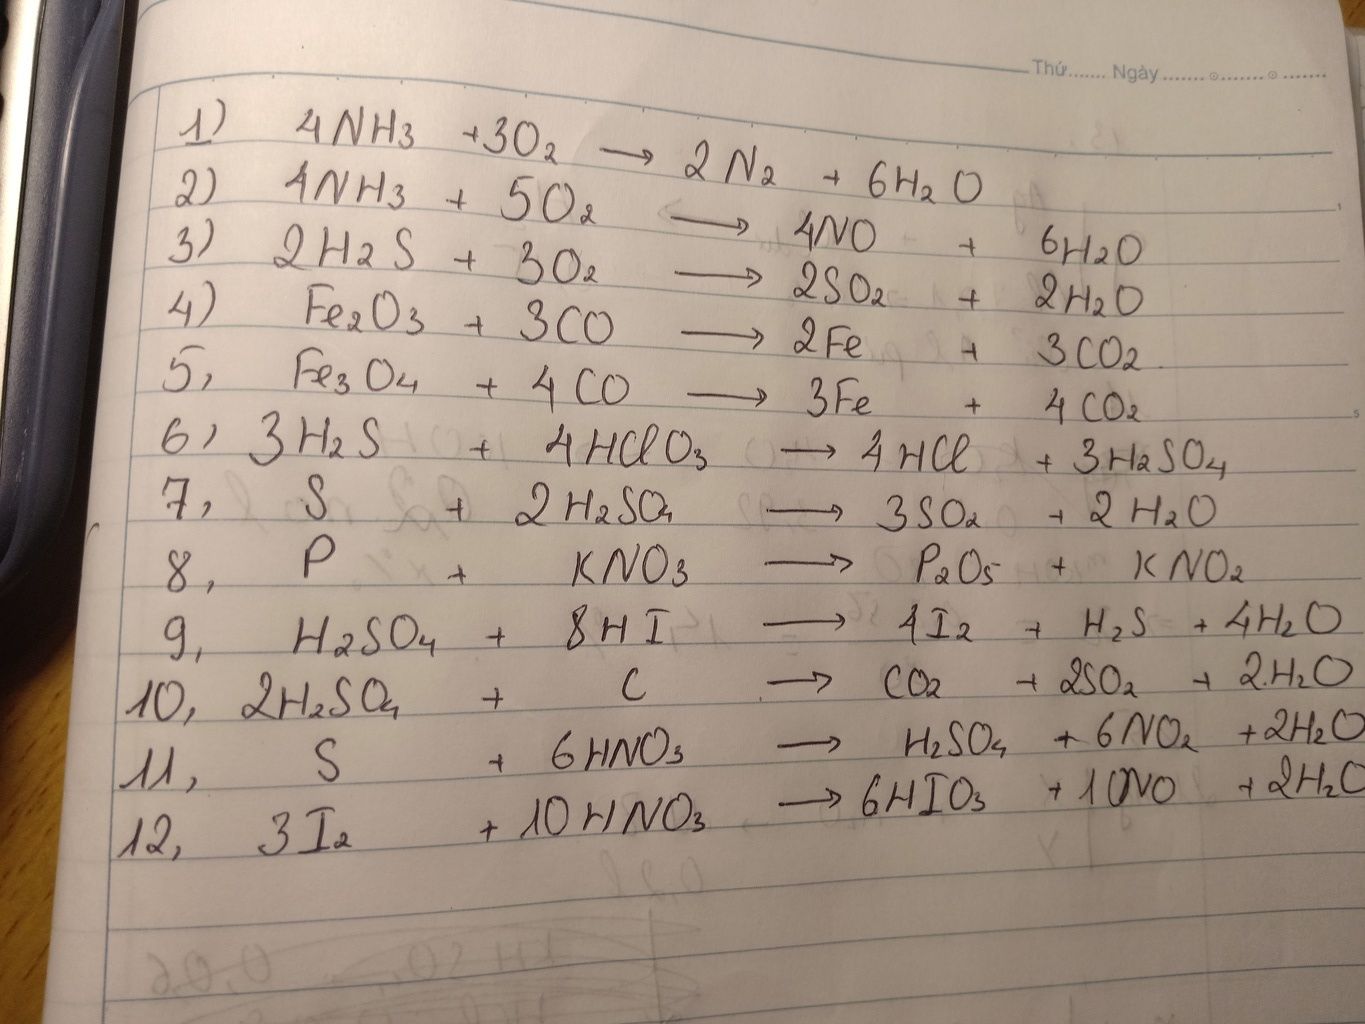 Thứ....... Ngày.......o.......o.......
1) 4NH3 +3O2 → 2N2 + 6H2O
2) 4NH3 + 5O2 → 4NO + 6H2O
3) 2H2S + 3O2 → 2SO2 + 2H2O
4) Fe2O3 + 3CO → 2Fe + 3CO2
5, Fe3O4 + 4CO → 3Fe + 4CO2
6, 3H2S + 4HClO3 → 4HCl + 3H2SO4
7, S + 2H2SO4 → 3SO2 + 2H2O
8, P + KNO3 → P2O5 + KNO2
9, H2SO4 + 8HI → 4I2 + H2S + 4H2O
10, 2H2SO4 + C → CO2 + 2SO2 + 2H2O
11, S + 6HNO3 → H2SO4 + 6NO2 + 2H2O
12, 3I2 + 10HNO3 → 6HIO3 + 10NO + 2H2O